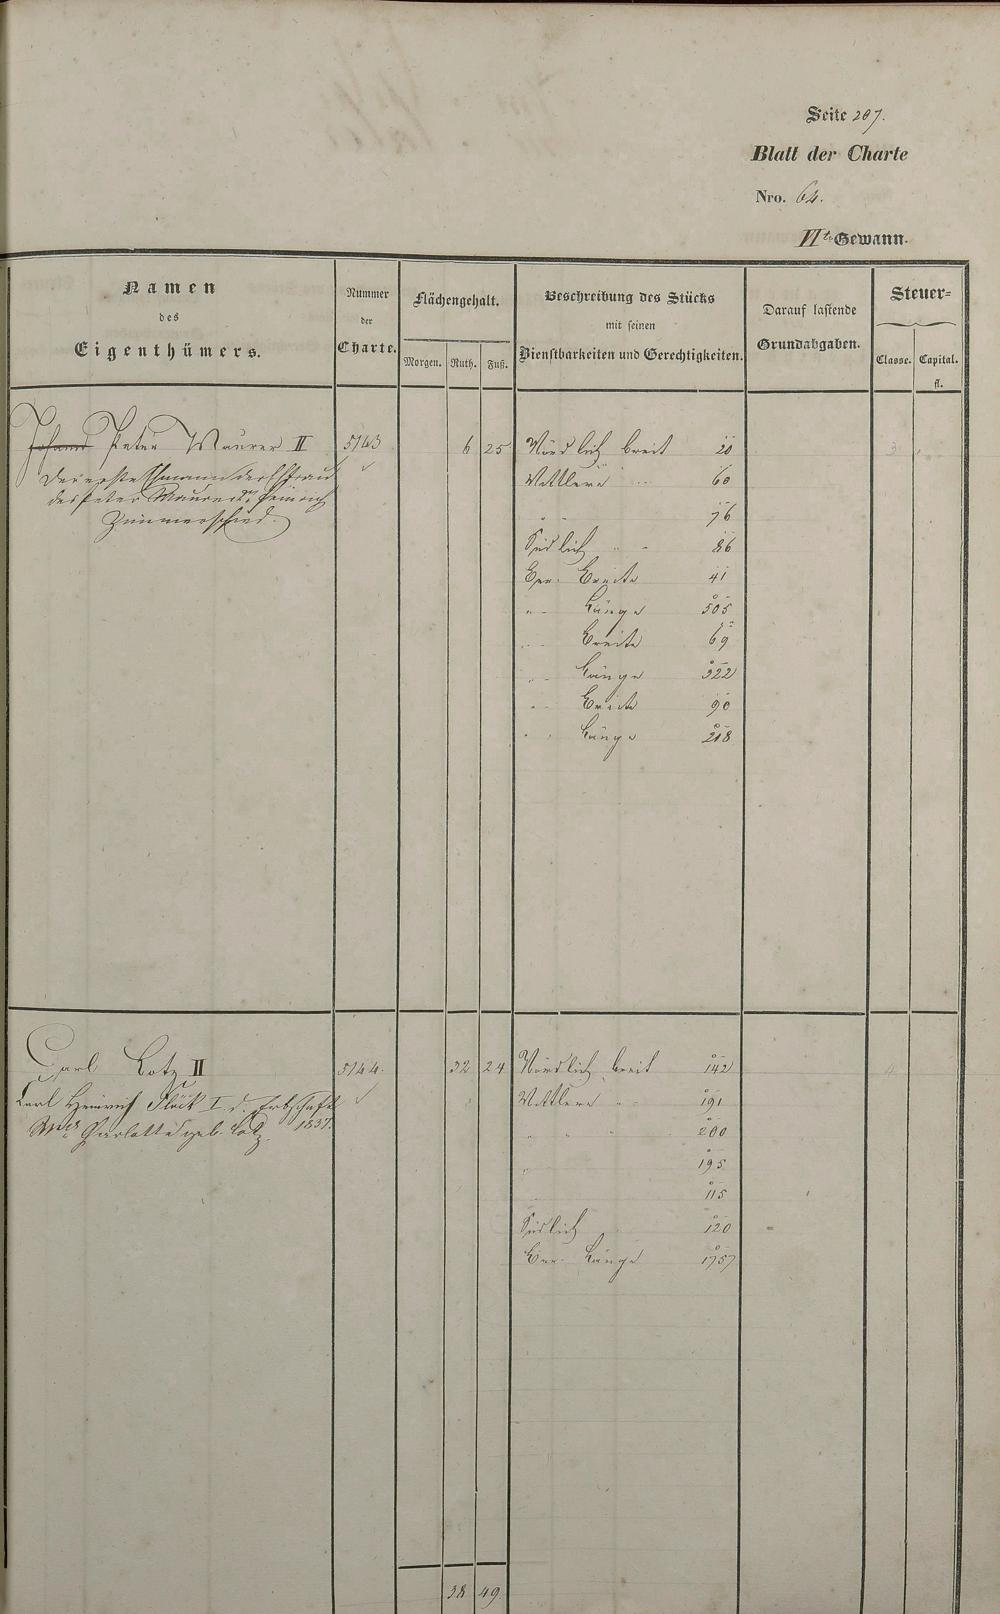 Seite 207.
Blatt der Charte
Nro. 64.
VIte Gewann.
Namen
des
Eigenthümers.
Nummer
der
Charte.
Flächengehalt.
Morgen. Ruth. Fuß.
Beschreibung des Stücks
mit seinen
Dienstbarkeiten und Gerechtigkeiten.
Darauf lastende
Grundabgaben.
Steuer=
Classe. Capital.
fl.
Johann Peter Maurer II 5143 6 25 Nördlich breit 20 3
Der erste Ehemann der Ehefrau Mittlere 60
des Peter Maurer Heinrich 76
Zimmerschied. Südlich 86
Breite 41
Länge 505
Breite 69
Länge 322
Breite 90
Länge 218
Carl Lotz II 5144. 32 24 Nördlich breit 142 4
Carl Heinrich Flöck I. d. Erbschaft 1837. Mittlere 191
Charlotte geb. Lotz. 200
195
115
Südlich 120
Länge 1757
38 49